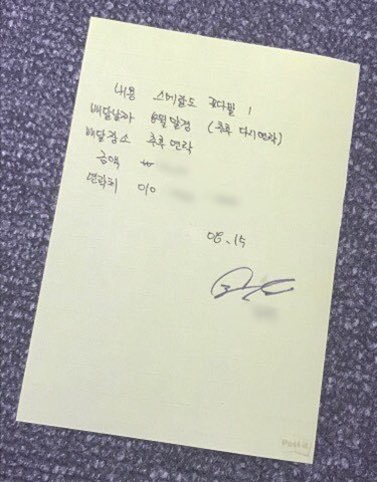 내용 스메랄도 꽃다발 1
배달날짜 8월 말경 (추후 다시 연락)
배달장소 추후 연락
금액 ₩
연락처 010
08. 15
Post-it